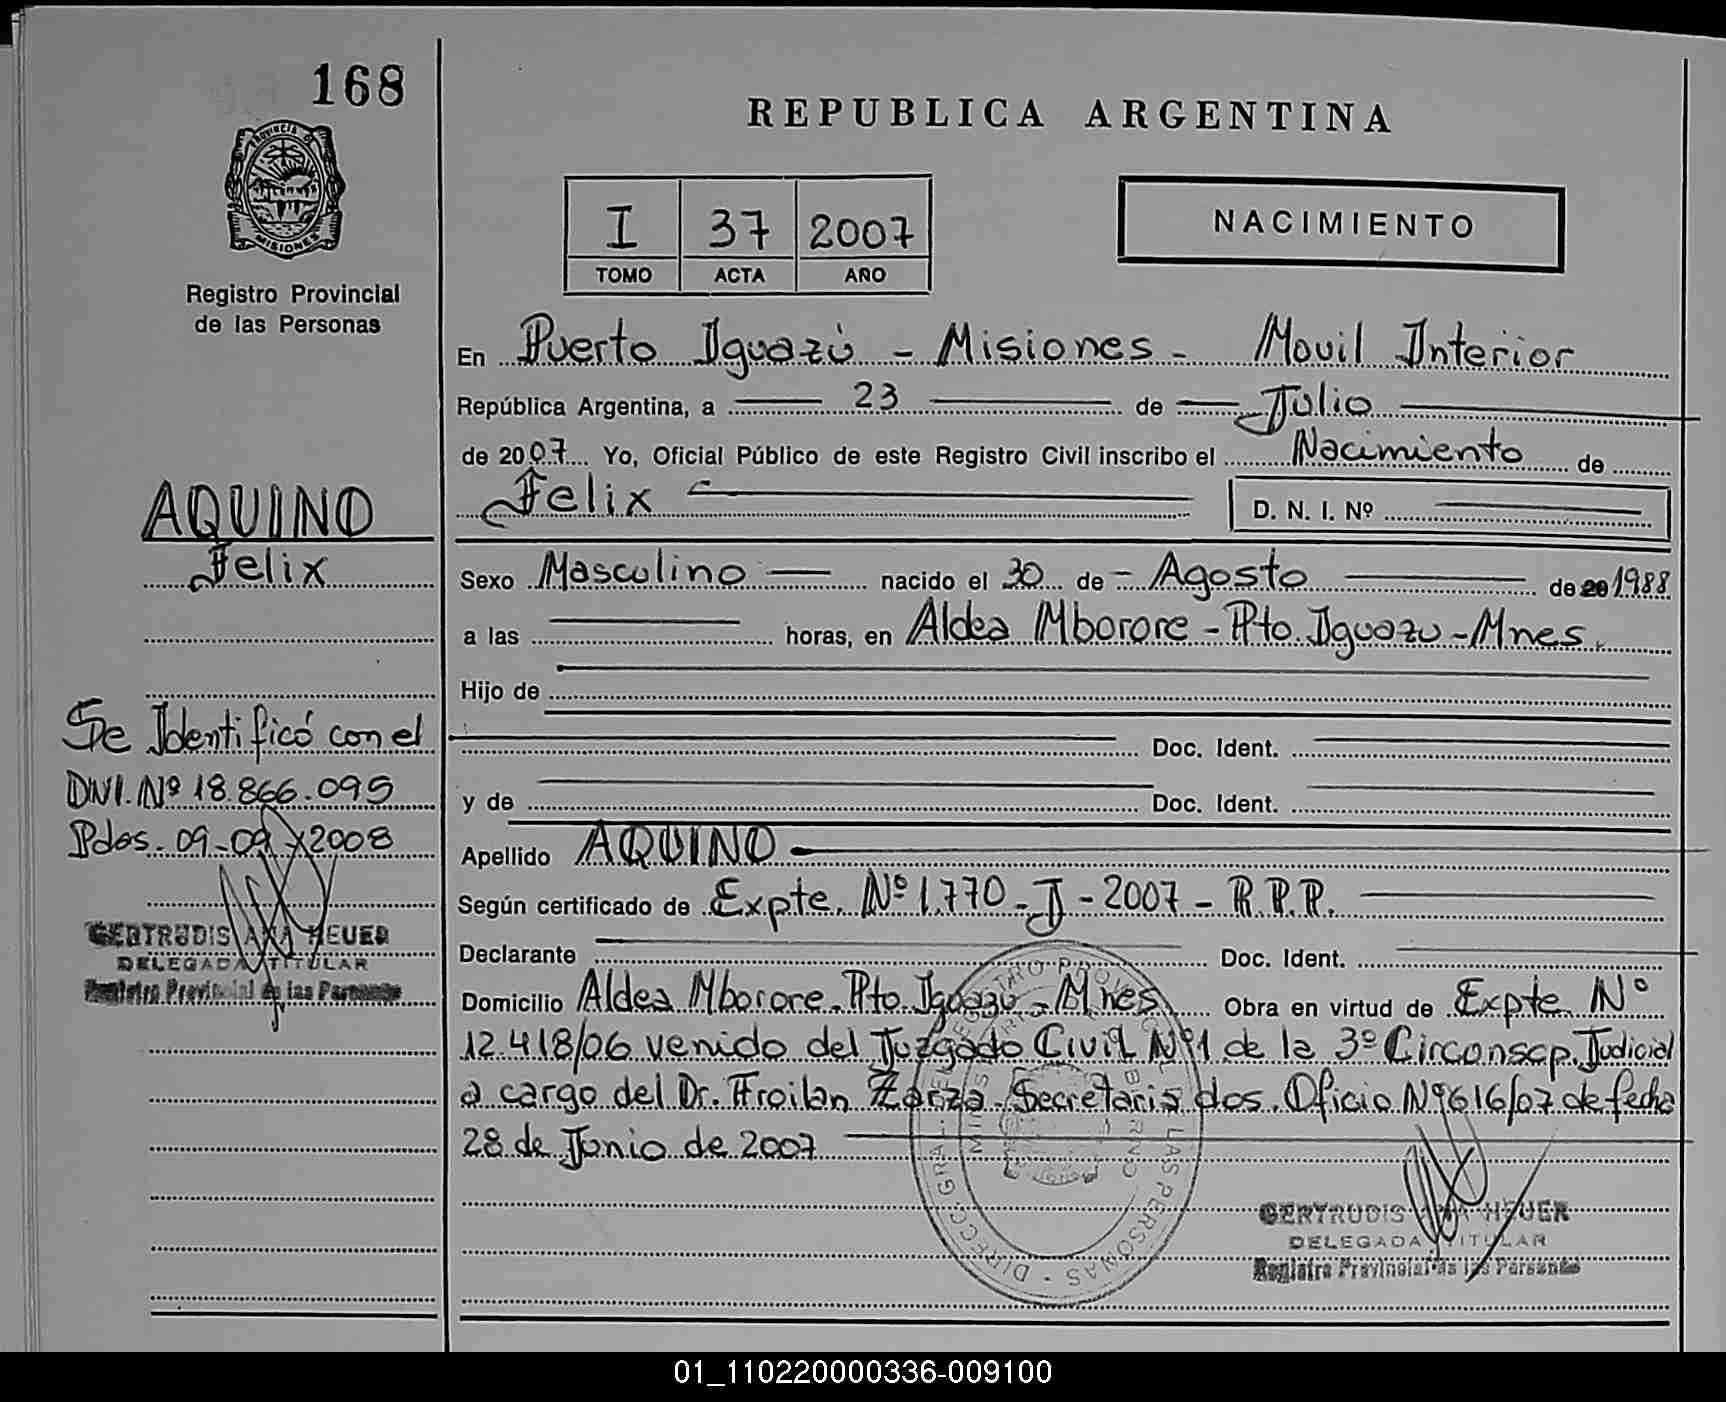 168
PROVINCIA DE
MISIONES
Registro Provincial
de las Personas
AQUINO
Felix
Se Identificó con el
DNI. Nº 18.866.095
Pdas. 09-09-2008
GERTRUDIS ANA HEUER
DELEGADA TITULAR
Registro Provincial de las Personas
REPUBLICA ARGENTINA
I 37 2007
TOMO ACTA AÑO
NACIMIENTO
En Puerto Iguazú - Misiones - Movil Interior
República Argentina, a 23 de Julio
de 2007 Yo, Oficial Público de este Registro Civil inscribo el Nacimiento de
Felix D. N. I. Nº
Sexo Masculino nacido el 30 de Agosto de 20 1988
a las horas, en Aldea Mborore - Pto. Iguazu - Mnes.
Hijo de
Doc. Ident.
y de Doc. Ident.
Apellido AQUINO
Según certificado de Expte. Nº 1.770 - J - 2007 - R.P.P.
Declarante Doc. Ident.
Domicilio Aldea Mborore. Pto. Iguazu - Mnes. Obra en virtud de Expte. Nº
12.418/06 venido del Juzgado Civil Nº1 de la 3º Circonscp. Judicial
a cargo del Dr. Froilan Zarza. Secretaria dos. Oficio Nº616/07 de fecha
28 de Junio de 2007
GERTRUDIS ANA HEUER
DELEGADA TITULAR
Registro Provincial de las Personas
01_110220000336-009100